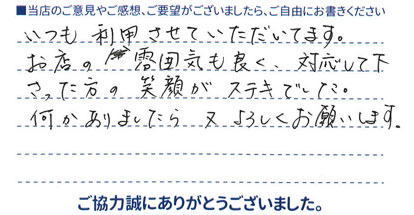 ■当店のご意見やご感想、ご要望がございましたら、ご自由にお書きください
いつも利用させていただいてます。
お店の雰囲気も良く、対応して下
さった方の笑顔がステキでした。
何かありましたら又よろしくお願いします。
ご協力誠にありがとうございました。